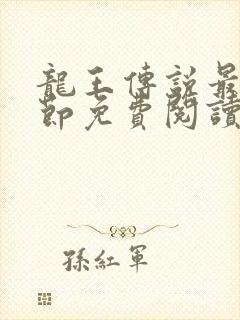 龍王傳說最
節免費閱讀
孫紅軍